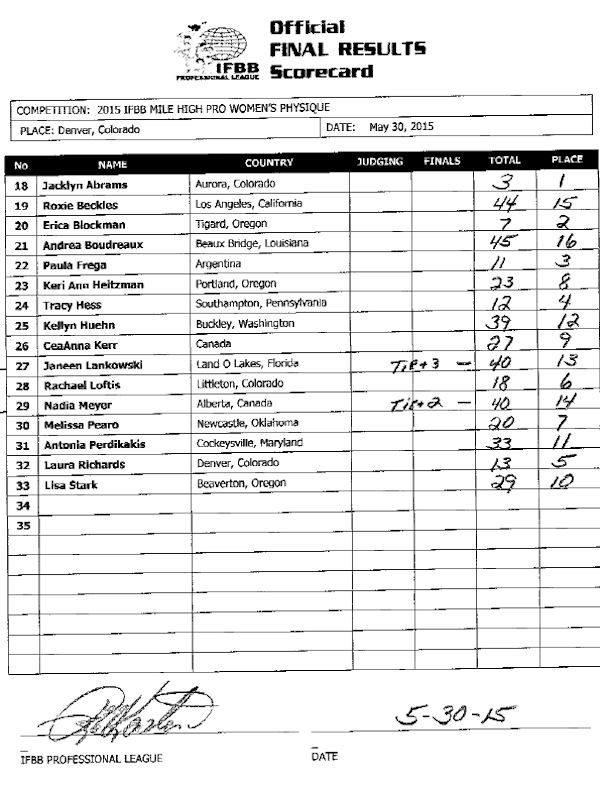 Official
FINAL RESULTS
Scorecard
IFBB
PROFESSIONAL LEAGUE
COMPETITION: 2015 IFBB MILE HIGH PRO WOMEN'S PHYSIQUE
PLACE: Denver, Colorado DATE: May 30, 2015
No NAME COUNTRY JUDGING FINALS TOTAL PLACE
18 Jacklyn Abrams Aurora, Colorado 3 1
19 Roxie Beckles Los Angeles, California 44 15
20 Erica Blockman Tigard, Oregon 7 2
21 Andrea Boudreaux Beaux Bridge, Louisiana 45 16
22 Paula Frega Argentina 11 3
23 Keri Ann Heitzman Portland, Oregon 23 8
24 Tracy Hess Southampton, Pennsylvania 12 4
25 Kellyn Huehn Buckley, Washington 39 12
26 CeaAnna Kerr Canada 27 9
27 Janeen Lankowski Land O Lakes, Florida Tie+3 — 40 13
28 Rachael Loftis Littleton, Colorado 18 6
29 Nadia Meyer Alberta, Canada Tie+2 — 40 14
30 Melissa Pearo Newcastle, Oklahoma 20 7
31 Antonia Perdikakis Cockeysville, Maryland 33 11
32 Laura Richards Denver, Colorado 13 5
33 Lisa Stark Beaverton, Oregon 29 10
34
35
5-30-15
IFBB PROFESSIONAL LEAGUE DATE